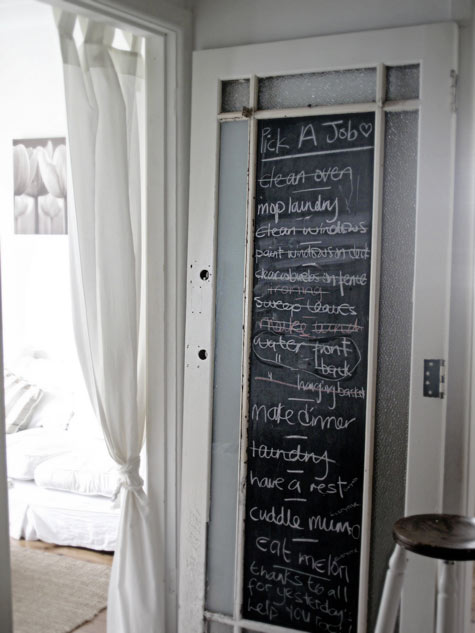 Pick A Job♡
clean oven
mop laundry
clean windows
paint windows in
clear cobwebs in fence
ironing
sweep leaves
make
water front
" back
" hanging baskets
make dinner
laundry
have a rest
cuddle mum
eat melon
thanks to all
for yesterday
help you